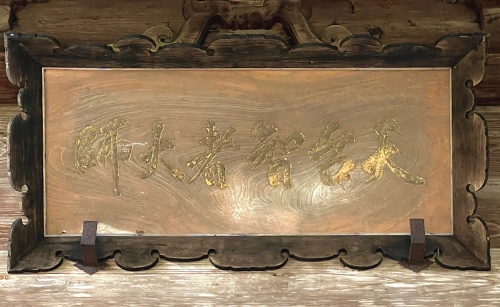 天台智者大師